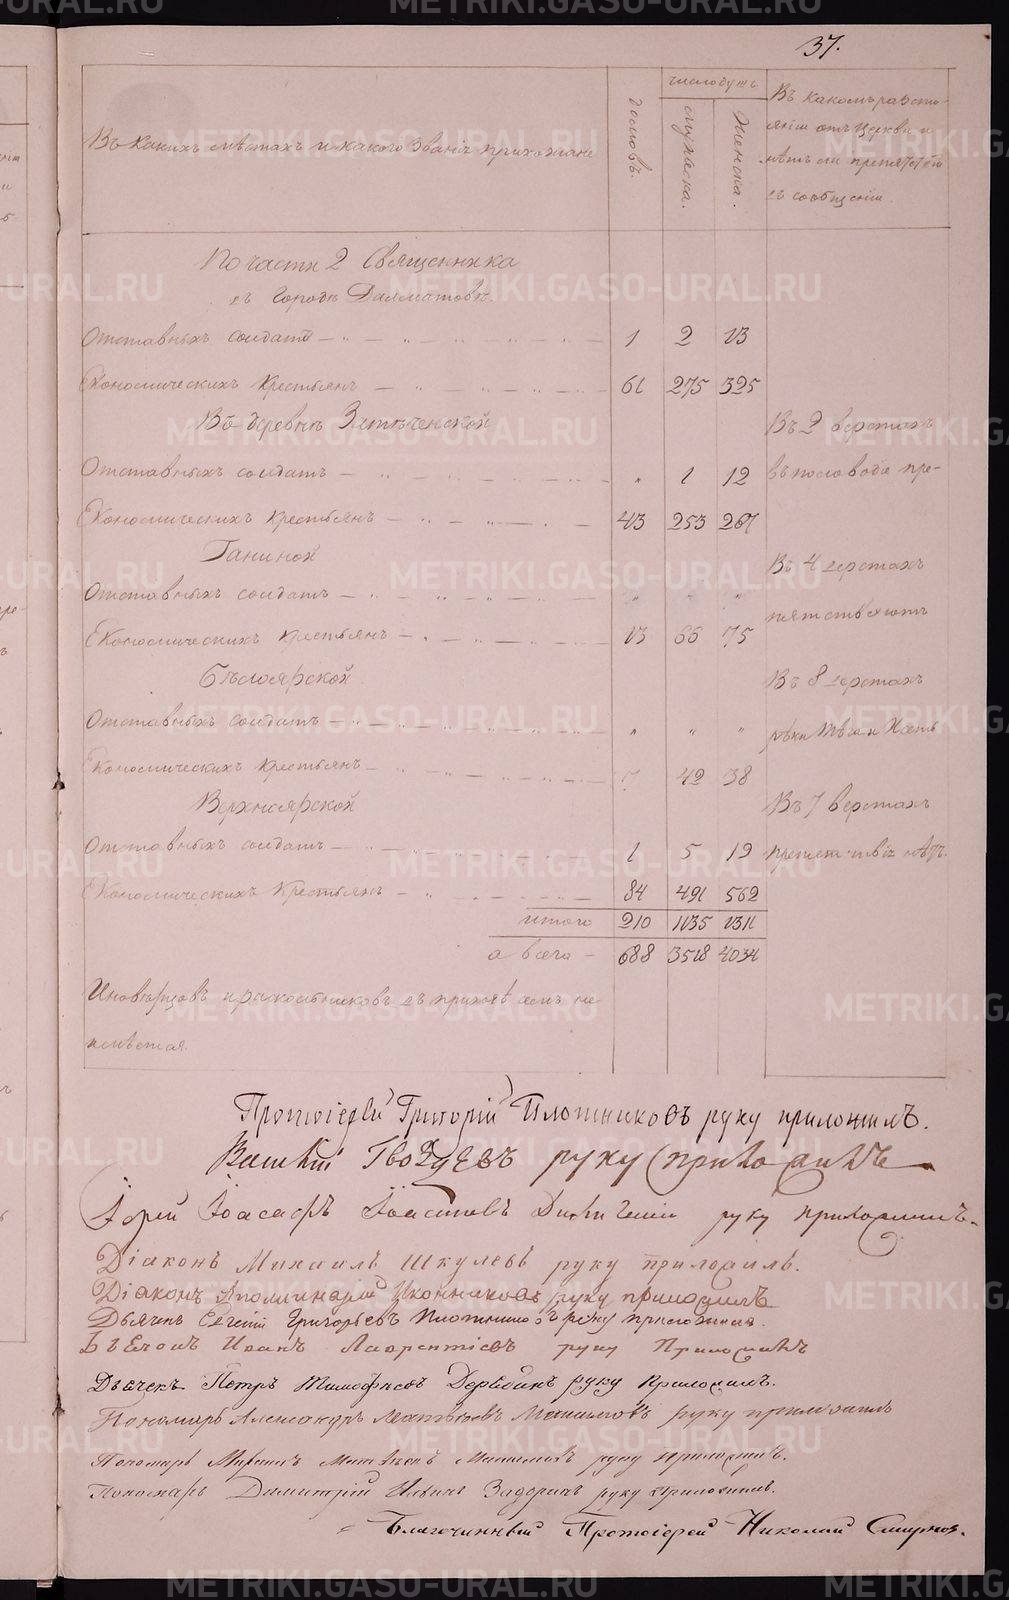 37.
Въ какихъ мѣстахъ и какого званія прихожане
домовъ.
число душъ
мужеска.
женска.
Въ какомъ разсто-
яніи отъ церкви и
нѣтъ ли препятствій
въ сообщеніи.
По части 2 Священника
въ городѣ Далматовѣ.
Отставныхъ солдатъ — 1 2 13
Экономическихъ Крестьянъ — 61 275 325
Въ деревнѣ Затеченской Въ 2 верстахъ
Отставныхъ солдатъ — „ 1 12 въ половодіе пре-
Экономическихъ Крестьянъ — 43 253 267
Ганиной Въ 4 верстахъ
Отставныхъ солдатъ — „ „ „ пятствуютъ
Экономическихъ Крестьянъ — 13 66 75
Бѣлоярской Въ 8 верстахъ
Отставныхъ солдатъ — „ „ „ рѣки Теча и Исеть
Экономическихъ Крестьянъ — 7 42 38
Верхнеярской Въ 7 верстахъ
Отставныхъ солдатъ — 1 5 19 препятствія нѣтъ.
Экономическихъ Крестьянъ — 84 491 562
итого 210 1135 1311
а всего — 688 3518 4034
Иновѣрцовъ и раскольниковъ въ приходѣ семъ не
имѣется.
Протоіерей Григорій Плотниковъ руку приложилъ.
Василій Гвоздевъ руку приложилъ
Іерей Іоасафъ руку приложилъ.
Діаконъ Михаилъ Шкулевъ руку приложилъ.
Діаконъ Аполлинарій Иконниковъ руку приложилъ
Дьячекъ Евгеній Григорьевъ Плотниковъ руку приложилъ.
Иванъ Лаврентіевъ руку Приложилъ
Дьячекъ Петръ Тимофеевъ Дерябинъ руку Приложилъ.
Пономарь Александръ Матвѣевъ Максимовъ руку приложилъ
Пономарь Матвѣевъ Максимовъ руку приложилъ.
Пономарь Димитрій Ильинъ Задоринъ руку приложилъ.
Благочинный Протоіерей Николай Смирнов.
METRIKI.GASO-URAL.RU